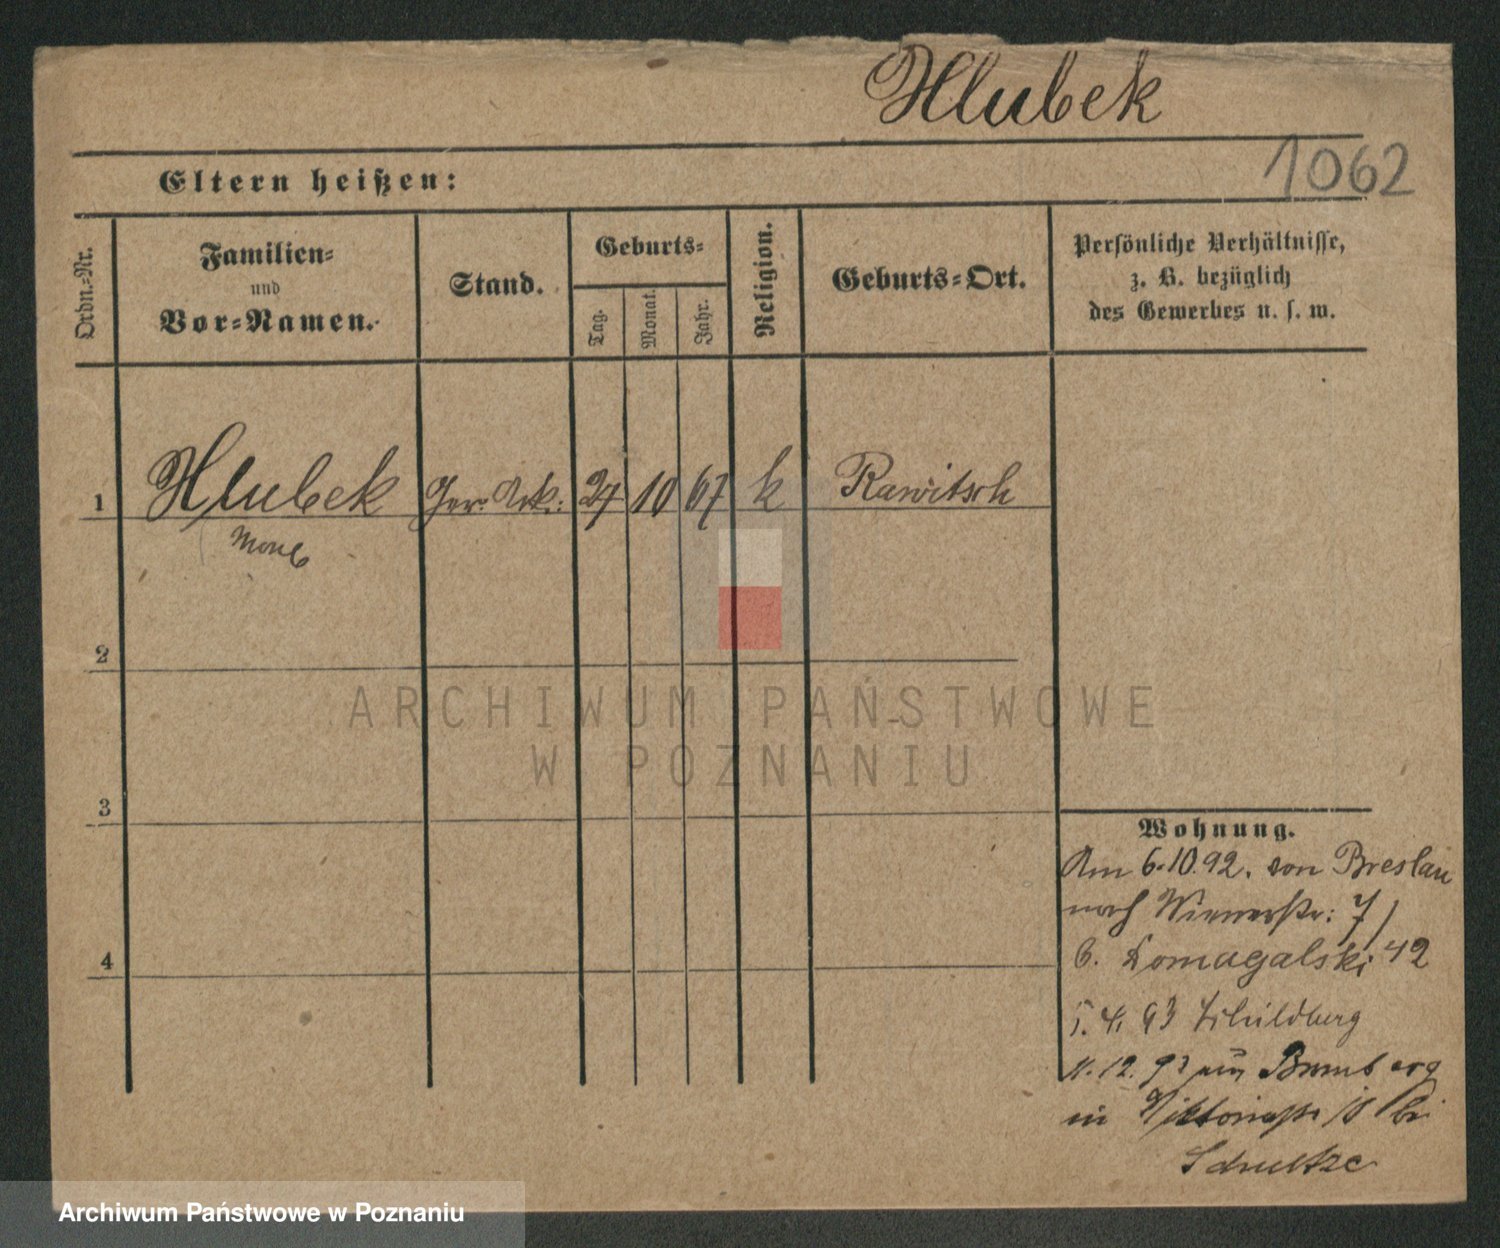 Hlubek
1062
Eltern heißen:
Ordn.-Nr.
Familien-
und
Vor-Namen.
Stand.
Geburts-
Tag.
Monat.
Jahr.
Religion.
Geburts-Ort.
Persönliche Verhältnisse,
z. B. bezüglich
des Gewerbes u. s. w.
1 Hlubek 24 10 67 k Rawitsch
2
3
4
ARCHIWUM PAŃSTWOWE
W POZNANIU
Wohnung.
Am 6.10.92. von Breslau
nach Wienerstr: 7/
b. Domagalski 42
Schildberg
Bromberg
in Viktoriastr bei
Schultze
Archiwum Państwowe w Poznaniu